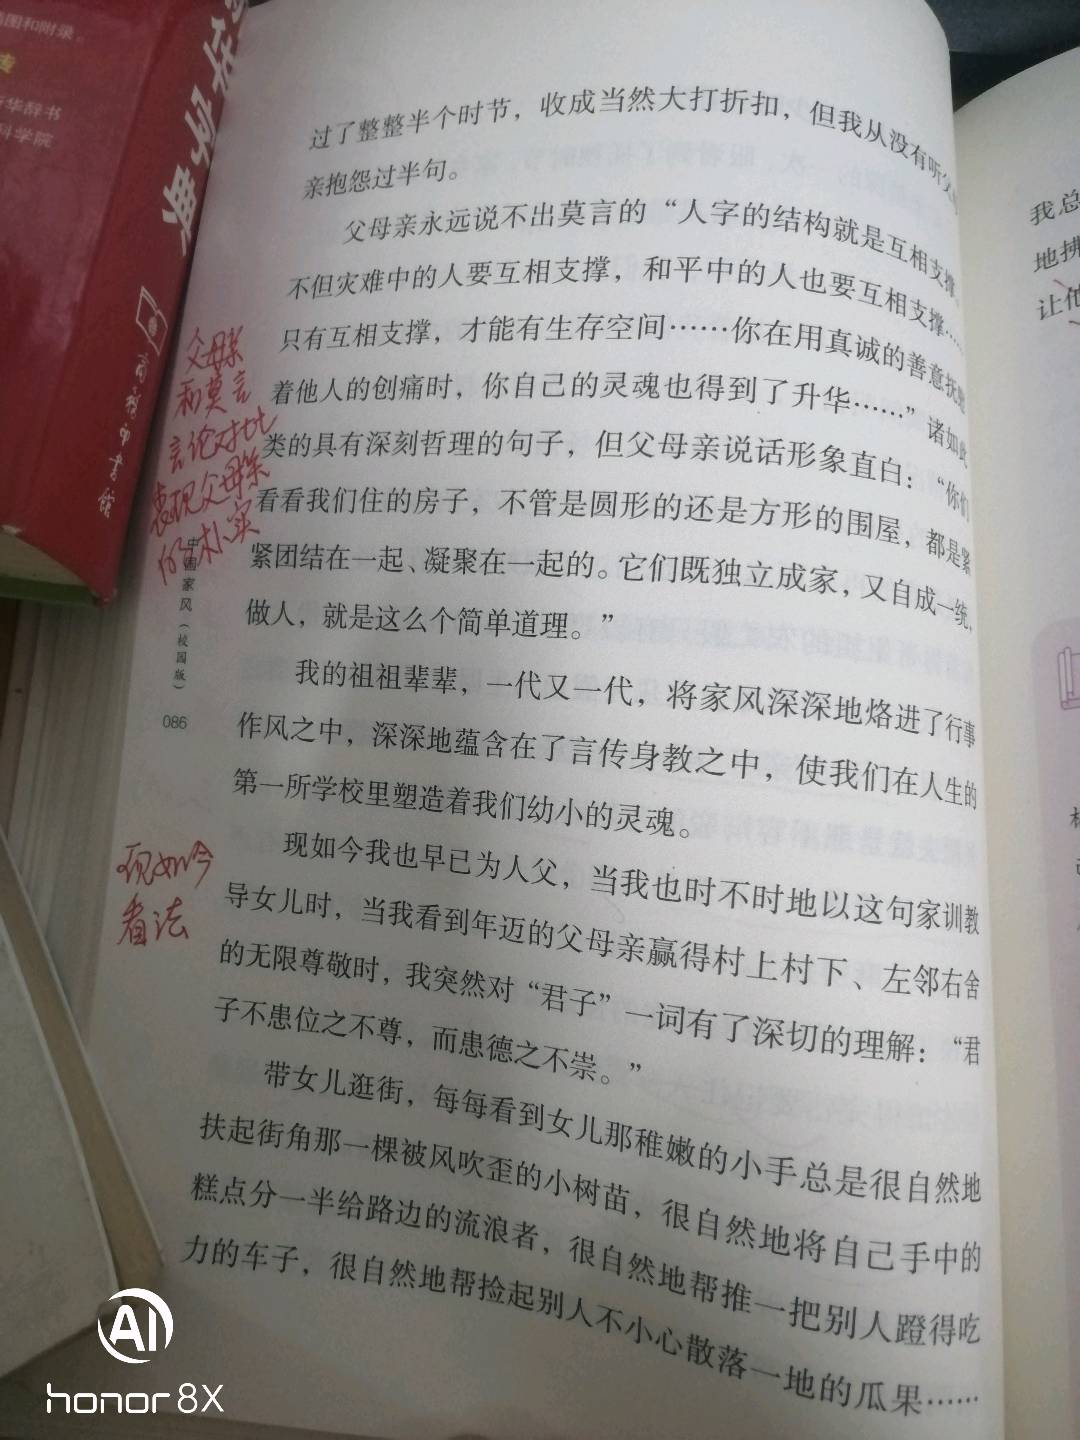 图和附录。
华辞书
科学院
典
商务印书馆
过了整整半个时节，收成当然大打折扣，但我从没有听父
亲抱怨过半句。
父母亲永远说不出莫言的“人字的结构就是互相支撑。
不但灾难中的人要互相支撑，和平中的人也要互相支撑……
只有互相支撑，才能有生存空间……你在用真诚的善意抚慰
着他人的创痛时，你自己的灵魂也得到了升华……”诸如此
类的具有深刻哲理的句子，但父母亲说话形象直白：“你们
看看我们住的房子，不管是圆形的还是方形的围屋，都是紧
紧团结在一起、凝聚在一起的。它们既独立成家，又自成一统，
做人，就是这么个简单道理。”
我的祖祖辈辈，一代又一代，将家风深深地烙进了行事
作风之中，深深地蕴含在了言传身教之中，使我们在人生的
第一所学校里塑造着我们幼小的灵魂。
现如今我也早已为人父，当我也时不时地以这句家训教
导女儿时，当我看到年迈的父母亲赢得村上村下、左邻右舍
的无限尊敬时，我突然对“君子”一词有了深切的理解：“君
子不患位之不尊，而患德之不崇。”
带女儿逛街，每每看到女儿那稚嫩的小手总是很自然地
扶起街角那一棵被风吹歪的小树苗，很自然地将自己手中的
糕点分一半给路边的流浪者，很自然地帮推一把别人蹬得吃
力的车子，很自然地帮捡起别人不小心散落一地的瓜果……
父母亲
和莫言
言论对比
表现父母亲
的朴实
中国家风（校园版）
086
现如今
看法
我总
地拂
让他
AI
honor 8X